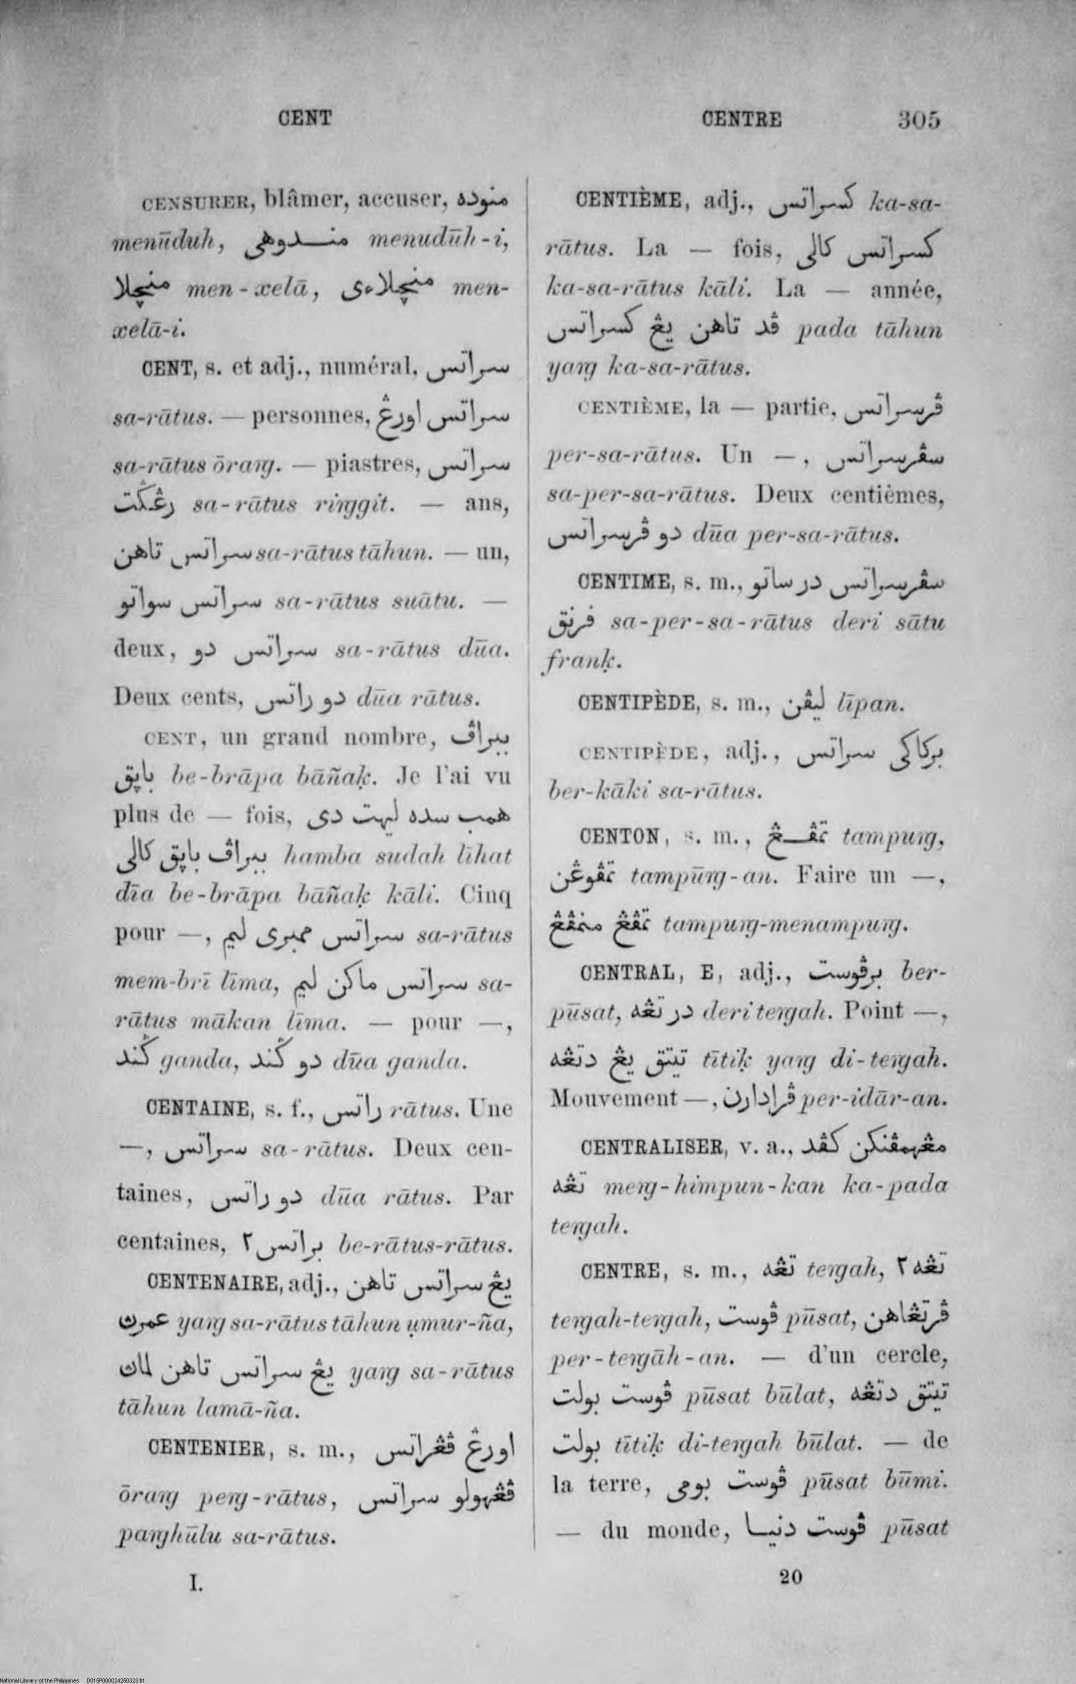 CENT
CENTRE 305
CENSURER, blâmer, accuser, منوده
menūduh, مندوهي menuduh-i,
منچلا men-xelā, منچلاءى men-
xelā-i.
CENT, s. et adj., numéral, سراتس
sa-rātus. — personnes, سراتس اورڠ
sa-rātus ōraŋg. — piastres, سراتس
رڠݢت sa-rātus riŋggit. — ans,
سراتس تاهن sa-rātus tāhun. — un,
سراتس سواتو sa-rātus suātu. —
deux, سراتس دو sa-rātus dūa.
Deux cents, دو راتس dūa rātus.
CENT, un grand nombre, ببراڤ
باڽق be-brāpa bāñaḳ. Je l'ai vu
plus de — fois, همب سده ليهت دى
ببراڤ باڽق كالى hamba sudah līhat
dīa be-brāpa bāñaḳ kāli. Cinq
pour —, سراتس ممبرى ليم sa-rātus
mem-brī līma, سراتس ماكن ليم sa-
rātus mākan līma. — pour —,
ݢند ganda, دو ݢند dūa ganda.
CENTAINE, s. f., راتس rātus. Une
—, سراتس sa-rātus. Deux cen-
taines, دو راتس dūa rātus. Par
centaines, براتس٢ be-rātus-rātus.
CENTENAIRE, adj., يڠ سراتس تاهن
عمرڽ yaŋg sa-rātus tāhun ụmur-ña,
يڠ سراتس تاهن لماڽ yaŋg sa-rātus
tāhun lamā-ña.
CENTENIER, s. m., اورڠ ڤڠراتس
ōraŋg peŋg-rātus, ڤڠهولو سراتس
paŋghūlu sa-rātus.
I.
CENTIÈME, adj., كسراتس ka-sa-
rātus. La — fois, كسراتس كالى
ka-sa-rātus kāli. La — année,
ڤد تاهن يڠ كسراتس pada tāhun
yaŋg ka-sa-rātus.
CENTIÈME, la — partie, ڤرسراتس
per-sa-rātus. Un —, سڤرسراتس
sa-per-sa-rātus. Deux centièmes,
دو ڤرسراتس dūa per-sa-rātus.
CENTIME, s. m., سڤرسراتس در ساتو
فرنق sa-per-sa-rātus deri sātu
franḳ.
CENTIPÈDE, s. m., ليڤن līpan.
CENTIPÈDE, adj., بركاكى سراتس
ber-kāki sa-rātus.
CENTON, s. m., تمڤڠ tampuŋg,
تمڤوڠن tampūŋg-an. Faire un —,
تمڤڠ منمڤڠ tampuŋg-menampuŋg.
CENTRAL, E, adj., برڤوست ber-
pūsat, در تڠه deri teŋgah. Point —,
تيتق يڠ دتڠه tītiḳ yaŋg di-teŋgah.
Mouvement —, ڤرادارن per-idār-an.
CENTRALISER, v. a., مڠهمڤنكن كڤد
تڠه meŋg-himpun-kan ka-pada
teŋgah.
CENTRE, s. m., تڠه teŋgah, تڠه٢
teŋgah-teŋgah, ڤوست pūsat, ڤرتڠاهن
per-teŋgāh-an. — d'un cercle,
ڤوست بولت pūsat būlat, تيتق دتڠه
بولت tītiḳ di-teŋgah būlat. — de
la terre, ڤوست بومى pūsat būmi.
— du monde, ڤوست دنيا pūsat
20
National Library of the Philippines